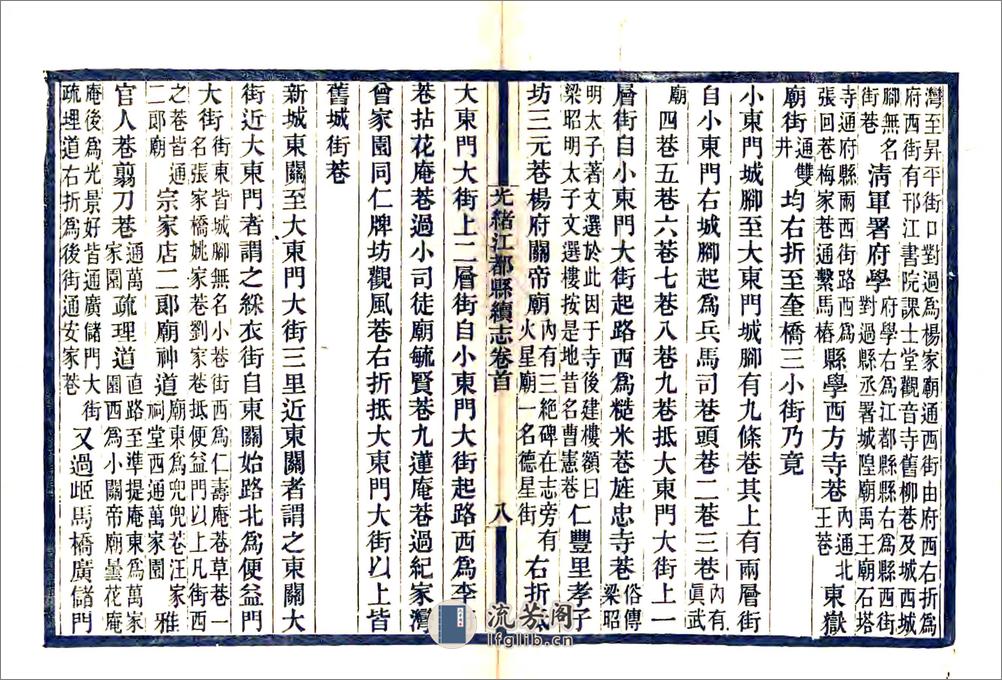 灣至昇平街口對過爲楊家廟通西街由府西右折爲
府西街有邗江書院課士堂觀音寺舊柳巷及城西城
腳無名街巷 清軍署府學 府學右爲江都縣縣右爲縣西街對過縣丞署城隍廟禹王廟石塔
寺通府縣兩西街路西爲張回巷梅家巷通繫馬樁 縣學西方寺巷 內通北王巷 東嶽
廟街 通雙井 均右折至奎橋三小街乃竟
小東門城腳至大東門城腳有九條巷其上有兩層街
自小東門右城腳起爲兵馬司巷頭巷二巷三巷 內有真武
廟 四巷五巷六巷七巷八巷九巷抵大東門大街上一
層街自小東門大街起路西爲糙米巷旌忠寺巷 俗傳梁昭
明太子著文選於此因于寺後建樓額曰梁昭明太子文選樓按是地昔名曹憲巷 仁豐里孝子
坊三元巷楊府關帝廟 內有三絕碑在志旁有火星廟一名德星街 右折
光緒江都縣續志卷首 八
大東門大街上二層街自小東門大街起路西爲李
巷拈花庵巷過小司徒廟毓賢巷九蓮庵巷過紀家灣
曾家園同仁牌坊觀風巷右折抵大東門大街以上皆
舊城街巷
新城東關至大東門大街三里近東關者謂之東關大
街近大東門者謂之綵衣街自東關始路北爲便益門
大街 街東皆城腳無名小巷街西爲仁壽庵巷草巷一名張家橋姚家巷劉家巷抵便益門以上凡街西
之巷皆通二郎廟 宗家店二郎廟神道 廟東爲兜兜巷汪家祠堂西通萬家園 雅
官人巷翦刀巷 通萬家園 疏理道 直路至準提庵東爲萬家園西爲小關帝廟曇花庵
庵後爲光景好皆通廣儲門大街疏理道右折爲後街通安家巷 又過 馬橋廣儲門
流芳阁
lfglib.cn